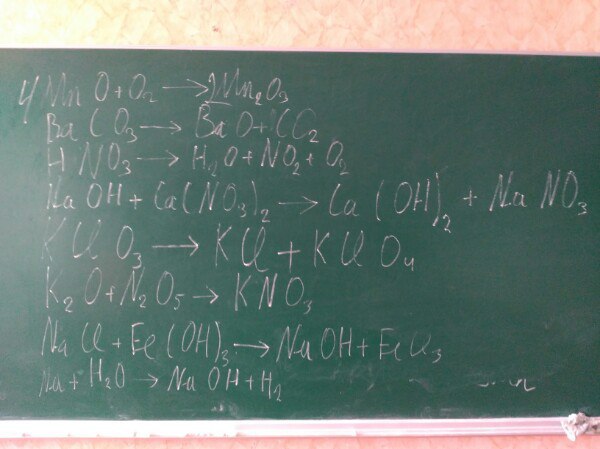 4MnO + O₂ → 2Mn₂O₃
BaCO₃ → BaO + CO₂
HNO₃ → H₂O + NO₂ + O₂
NaOH + Ca(NO₃)₂ → Ca(OH)₂ + NaNO₃
KClO₃ → KCl + KClO₄
K₂O + N₂O₅ → KNO₃
NaCl + Fe(OH)₃ → NaOH + FeCl₃
Na + H₂O → NaOH + H₂